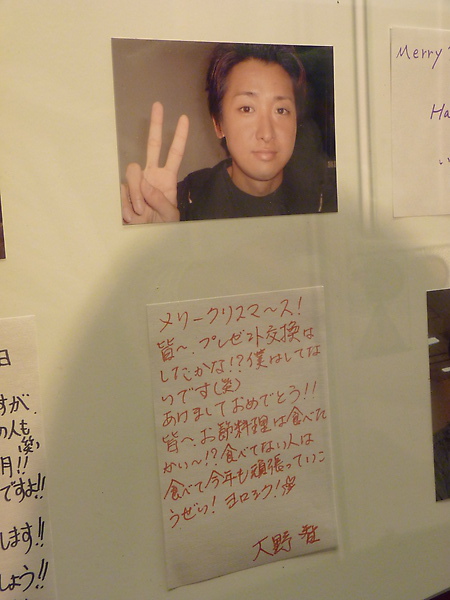 Merry
Ha
メリークリスマース!
皆〜、プレゼント交換は
したかな!?僕はしてな
いです(笑)
あけましておめでとう!!
皆〜、お節料理は食べた
かい〜!?食べてない人は
食べて、今年も頑張っていこ
うぜい!ヨロシク!
大野 智
日
すが、
の人も
月!!
ですよ!!
します!!
しょう!!